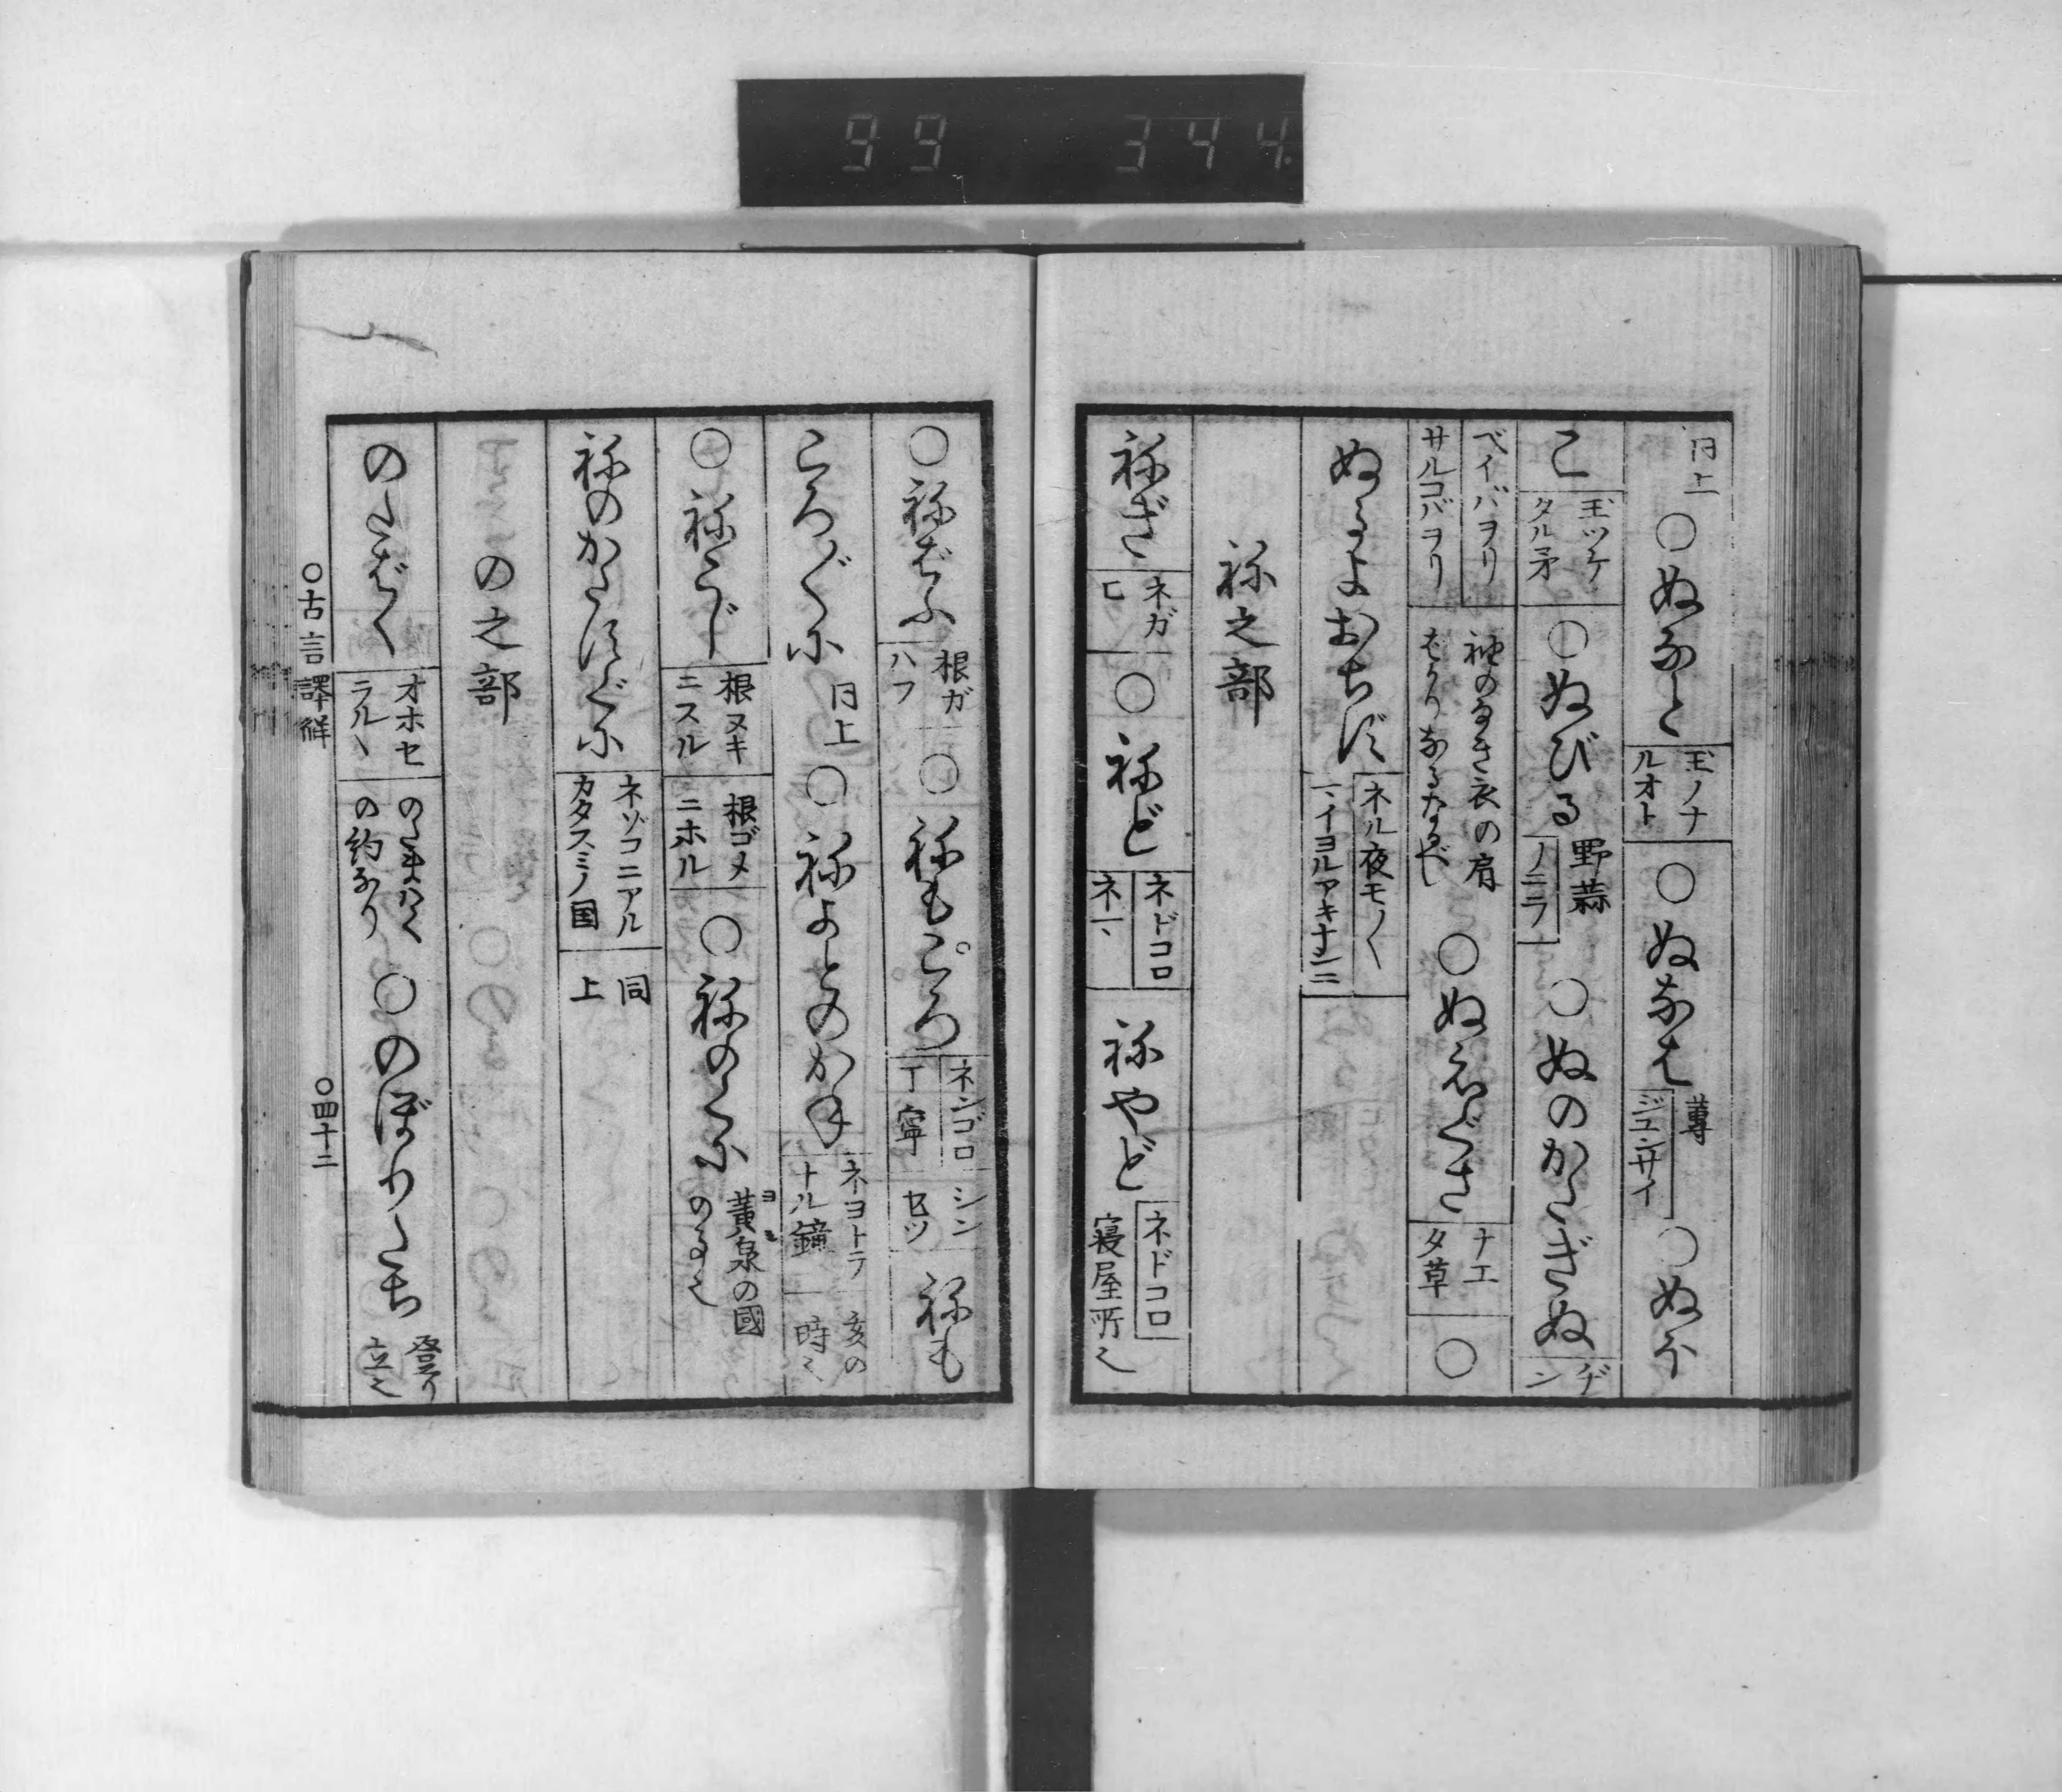 99 344.
同上 ○ぬなと 玉ノナルオト ○ぬなは 蓴 ジユンサイ ○ぬほ
こ 玉ツケタル矛 ○ぬびる 野蒜 ノニラ ○ぬのかたぎぬ
ベイバヲリ サルコバヲリ 袖のなき衣の肩ばかりあるなるべし ○ぬえぐさ ナエタ草 ○
ぬるよおちず ネル夜モノ〱 一ヽイヨルアキナシニ
ね之部
ねぎ ネガヒ ○ねど ネドコロ ネヽ ねやど ネドコロ 寝屋所也
○ねばふ 根ガハフ ○ねもころ ネンゴロ 丁寧 シンセツ ねも
ころ〲に 同上 ○ねよとのかね ネヨトテナル鐘 亥の時也
○ねこじ 根ヌキニスル 根ゴメニホル ○ねのくに 黄泉の國のこと也
ねのかたすくに ネゾコニアルカタスミノ国 同上
の之部
のたばく オホセラルヽ のたまはくの約なり ○のぼりたち 登り立也
○古言譯解 ○四十二